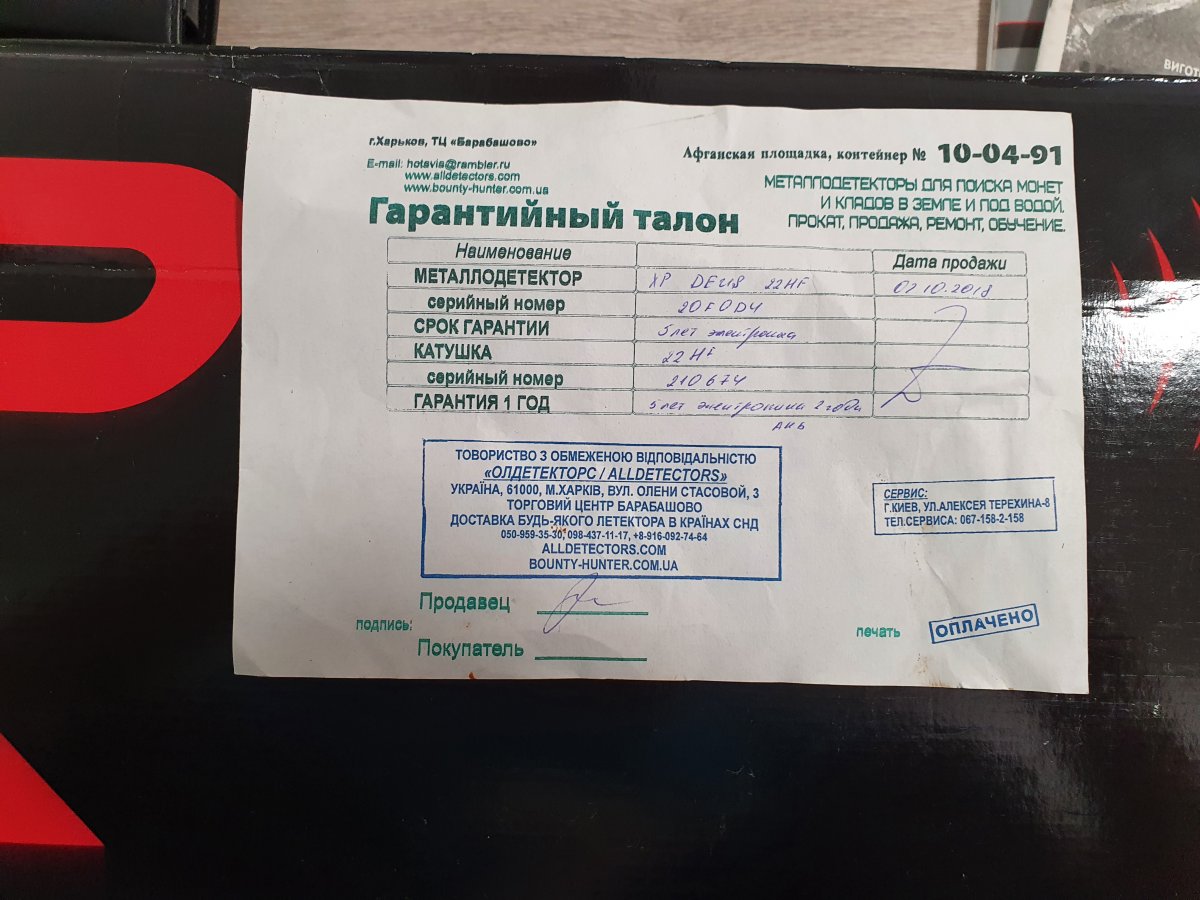 ВИГОТ
г.Харьков, ТЦ «Барабашово»
E-mail: hotavia@rambler.ru
www.alldetectors.com
www.bounty-hunter.com.ua
Афганская площадка, контейнер № 10-04-91
МЕТАЛЛОДЕТЕКТОРЫ ДЛЯ ПОИСКА МОНЕТ
И КЛАДОВ В ЗЕМЛЕ И ПОД ВОДОЙ.
ПРОКАТ, ПРОДАЖА, РЕМОНТ, ОБУЧЕНИЕ.
Гарантийный талон
Наименование Дата продажи
МЕТАЛЛОДЕТЕКТОР XP DEUS 22HF 02.10.2018
серийный номер 20F0D4
СРОК ГАРАНТИИ 5 лет электроника
КАТУШКА 22HF
серийный номер 210674
ГАРАНТИЯ 1 ГОД 5 лет электроника 2 года
АКБ
ТОВОРИСТВО З ОБМЕЖЕНОЮ ВІДПОВІДАЛЬНІСТЮ
«ОЛДЕТЕКТОРС / ALLDETECTORS»
УКРАЇНА, 61000, М.ХАРКІВ, ВУЛ. ОЛЕНИ СТАСОВОЙ, 3
ТОРГОВИЙ ЦЕНТР БАРАБАШОВО
ДОСТАВКА БУДЬ-ЯКОГО ЛЕТЕКТОРА В КРАЇНАХ СНД
050-959-35-30, 098-437-11-17, +8-916-092-74-64
ALLDETECTORS.COM
BOUNTY-HUNTER.COM.UA
СЕРВИС:
Г.КИЕВ, УЛ.АЛЕКСЕЯ ТЕРЕХИНА-8
ТЕЛ.СЕРВИСА: 067-158-2-158
Продавец
подпись:
Покупатель
печать
ОПЛАЧЕНО